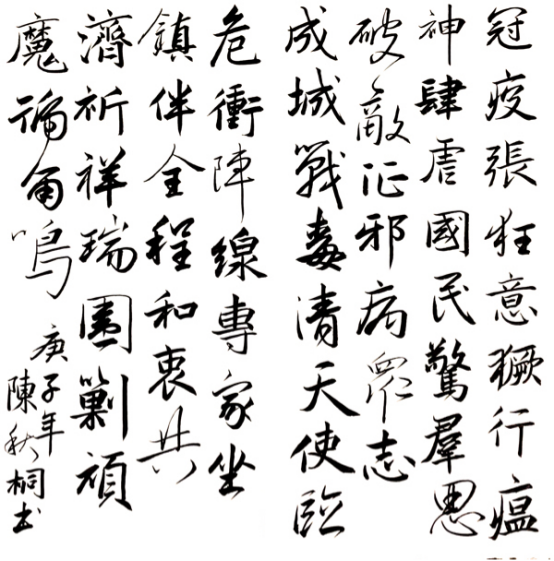 冠疫張狂意獗行瘟
神肆虐國民驚羣思
破敵邪病眾志
成城戰毒清天使臨
危衝陣線專家坐
鎮伴全程和衷共
濟祈祥瑞圍剿頑
魔角鳴
庚子年
陳秋桐书